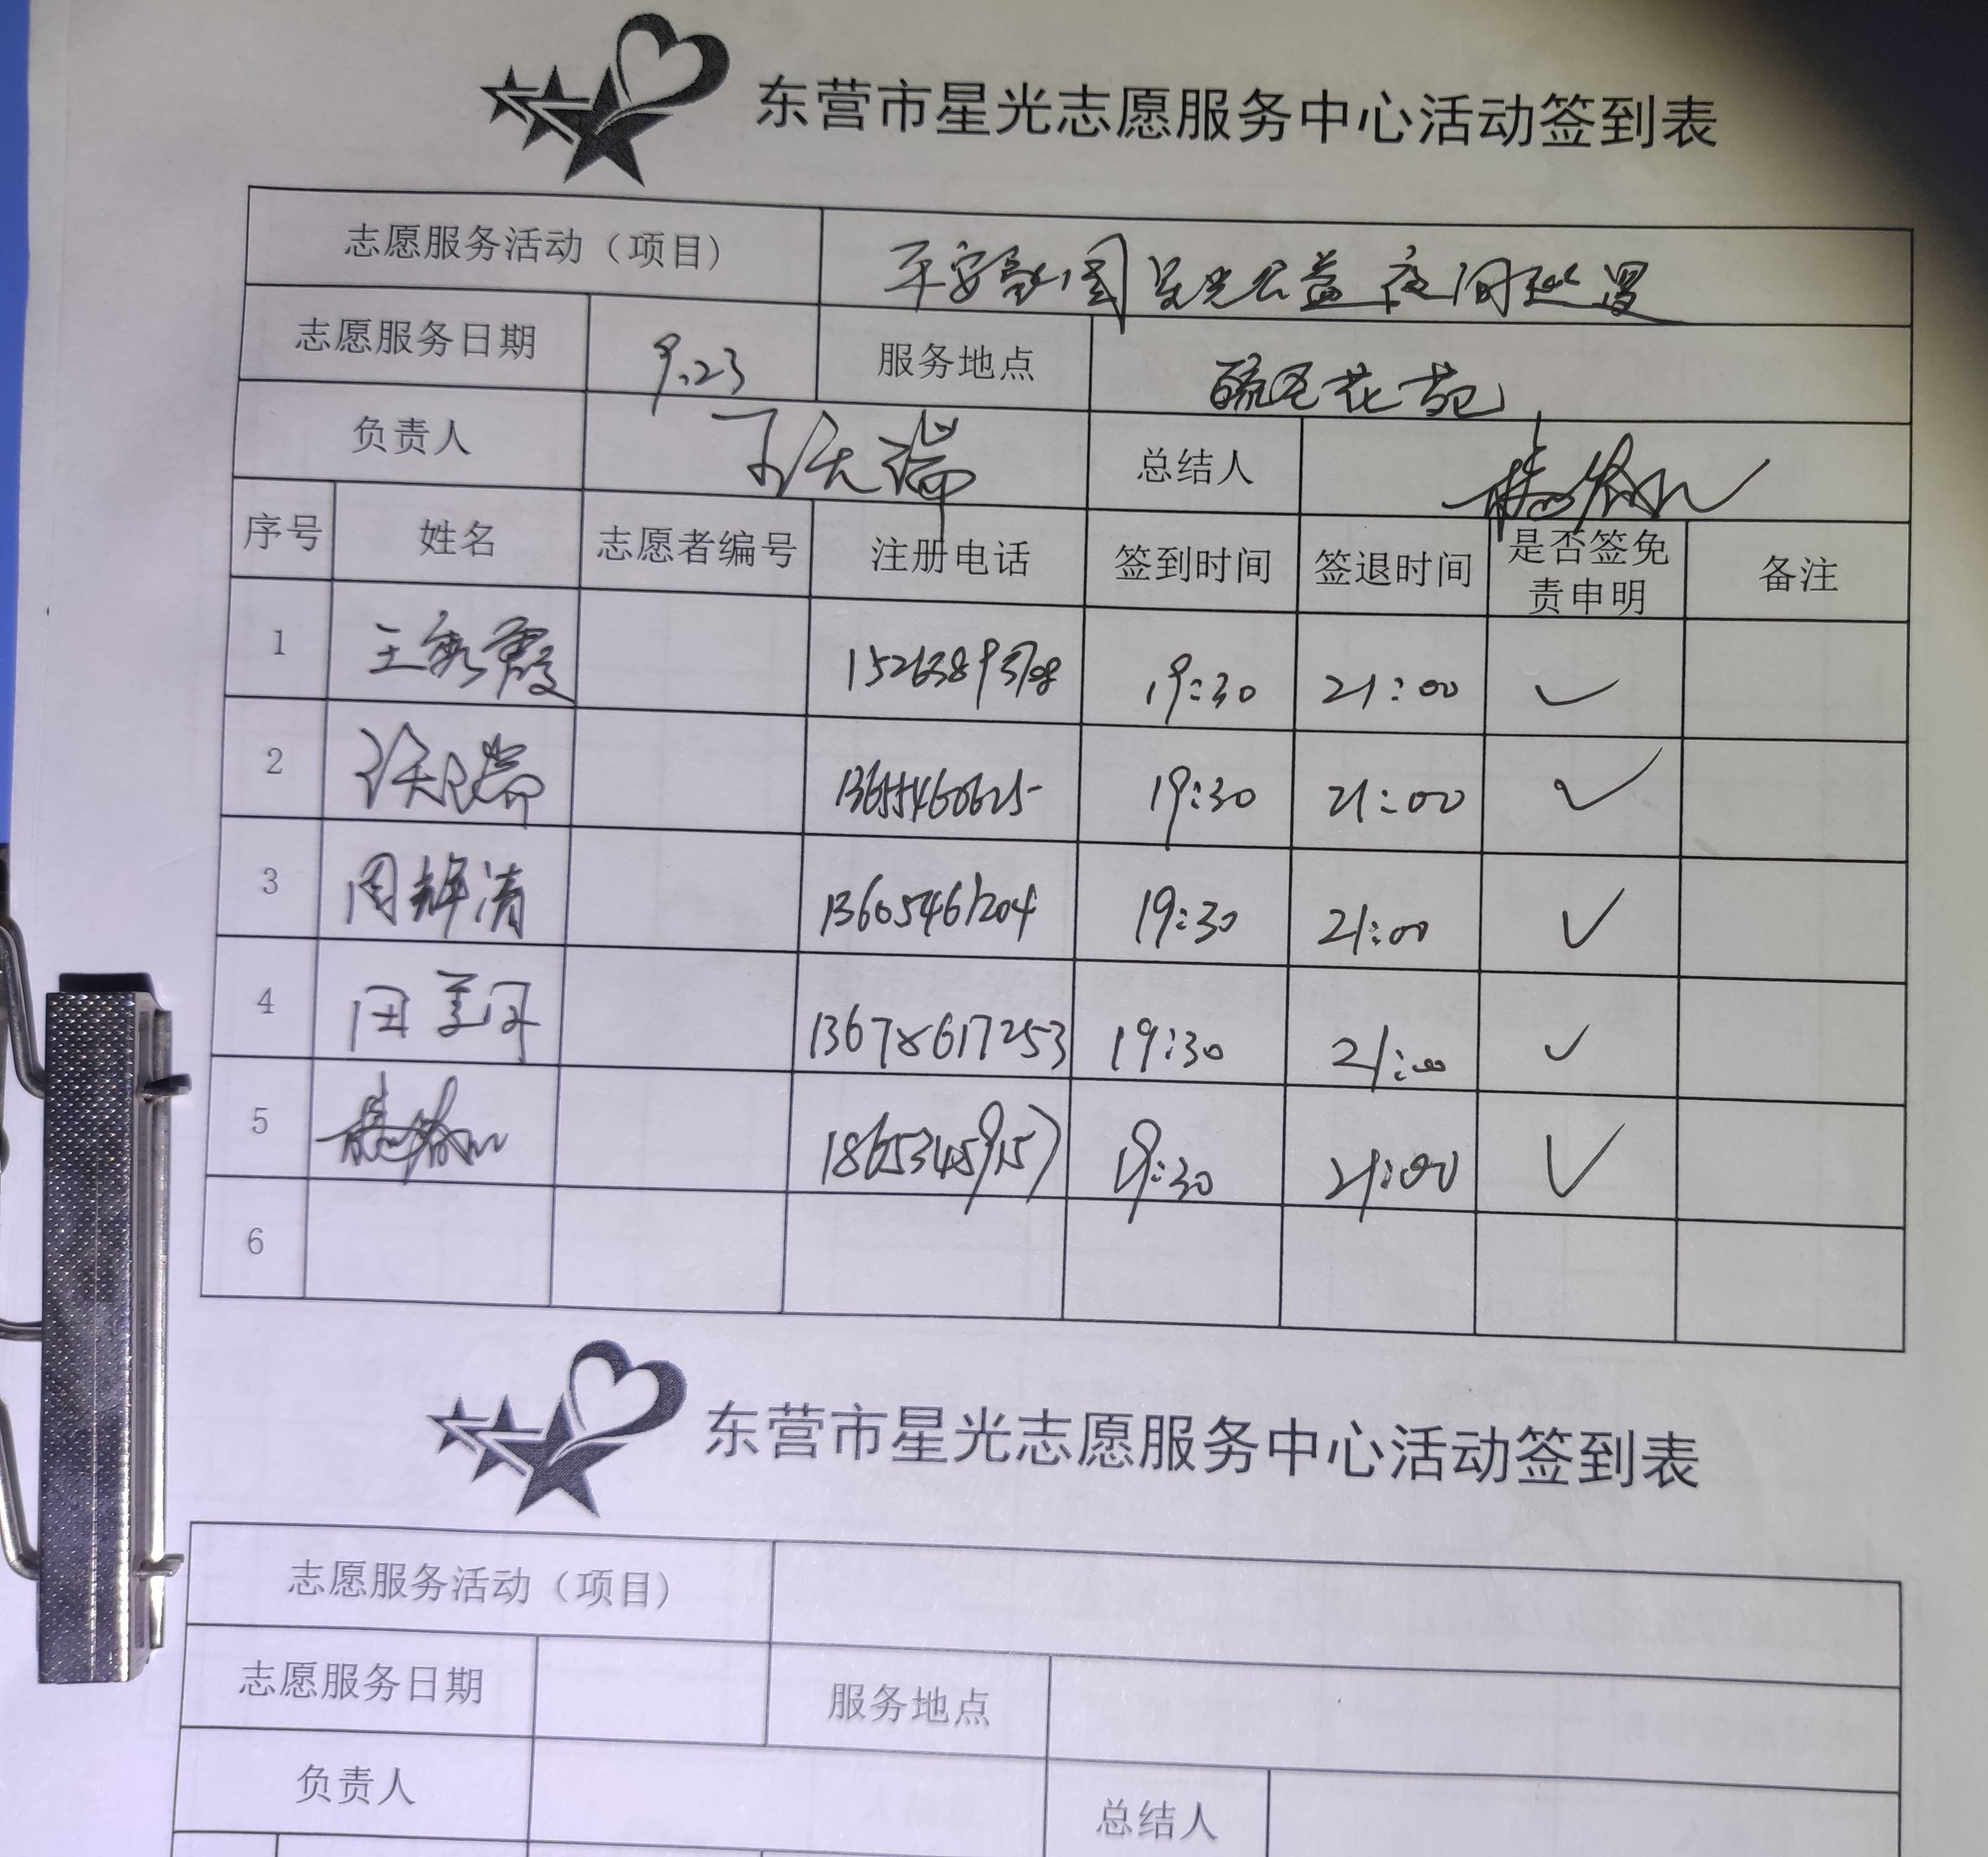 东营市星光志愿服务中心活动签到表
志愿服务活动（项目） 平安 星光公益夜间巡逻
志愿服务日期 9.23 服务地点 花苑
负责人 总结人
序号 姓名 志愿者编号 注册电话 签到时间 签退时间 是否签免责申明 备注
1 王秀霞 19:30 21:00 ✓
2 19:30 21:00 ✓
3 周辉清 13605461204 19:30 21:00 ✓
4 田美丹 13678617253 19:30 21:00 ✓
5 19:30 21:00 ✓
6
东营市星光志愿服务中心活动签到表
志愿服务活动（项目）
志愿服务日期 服务地点
负责人 总结人